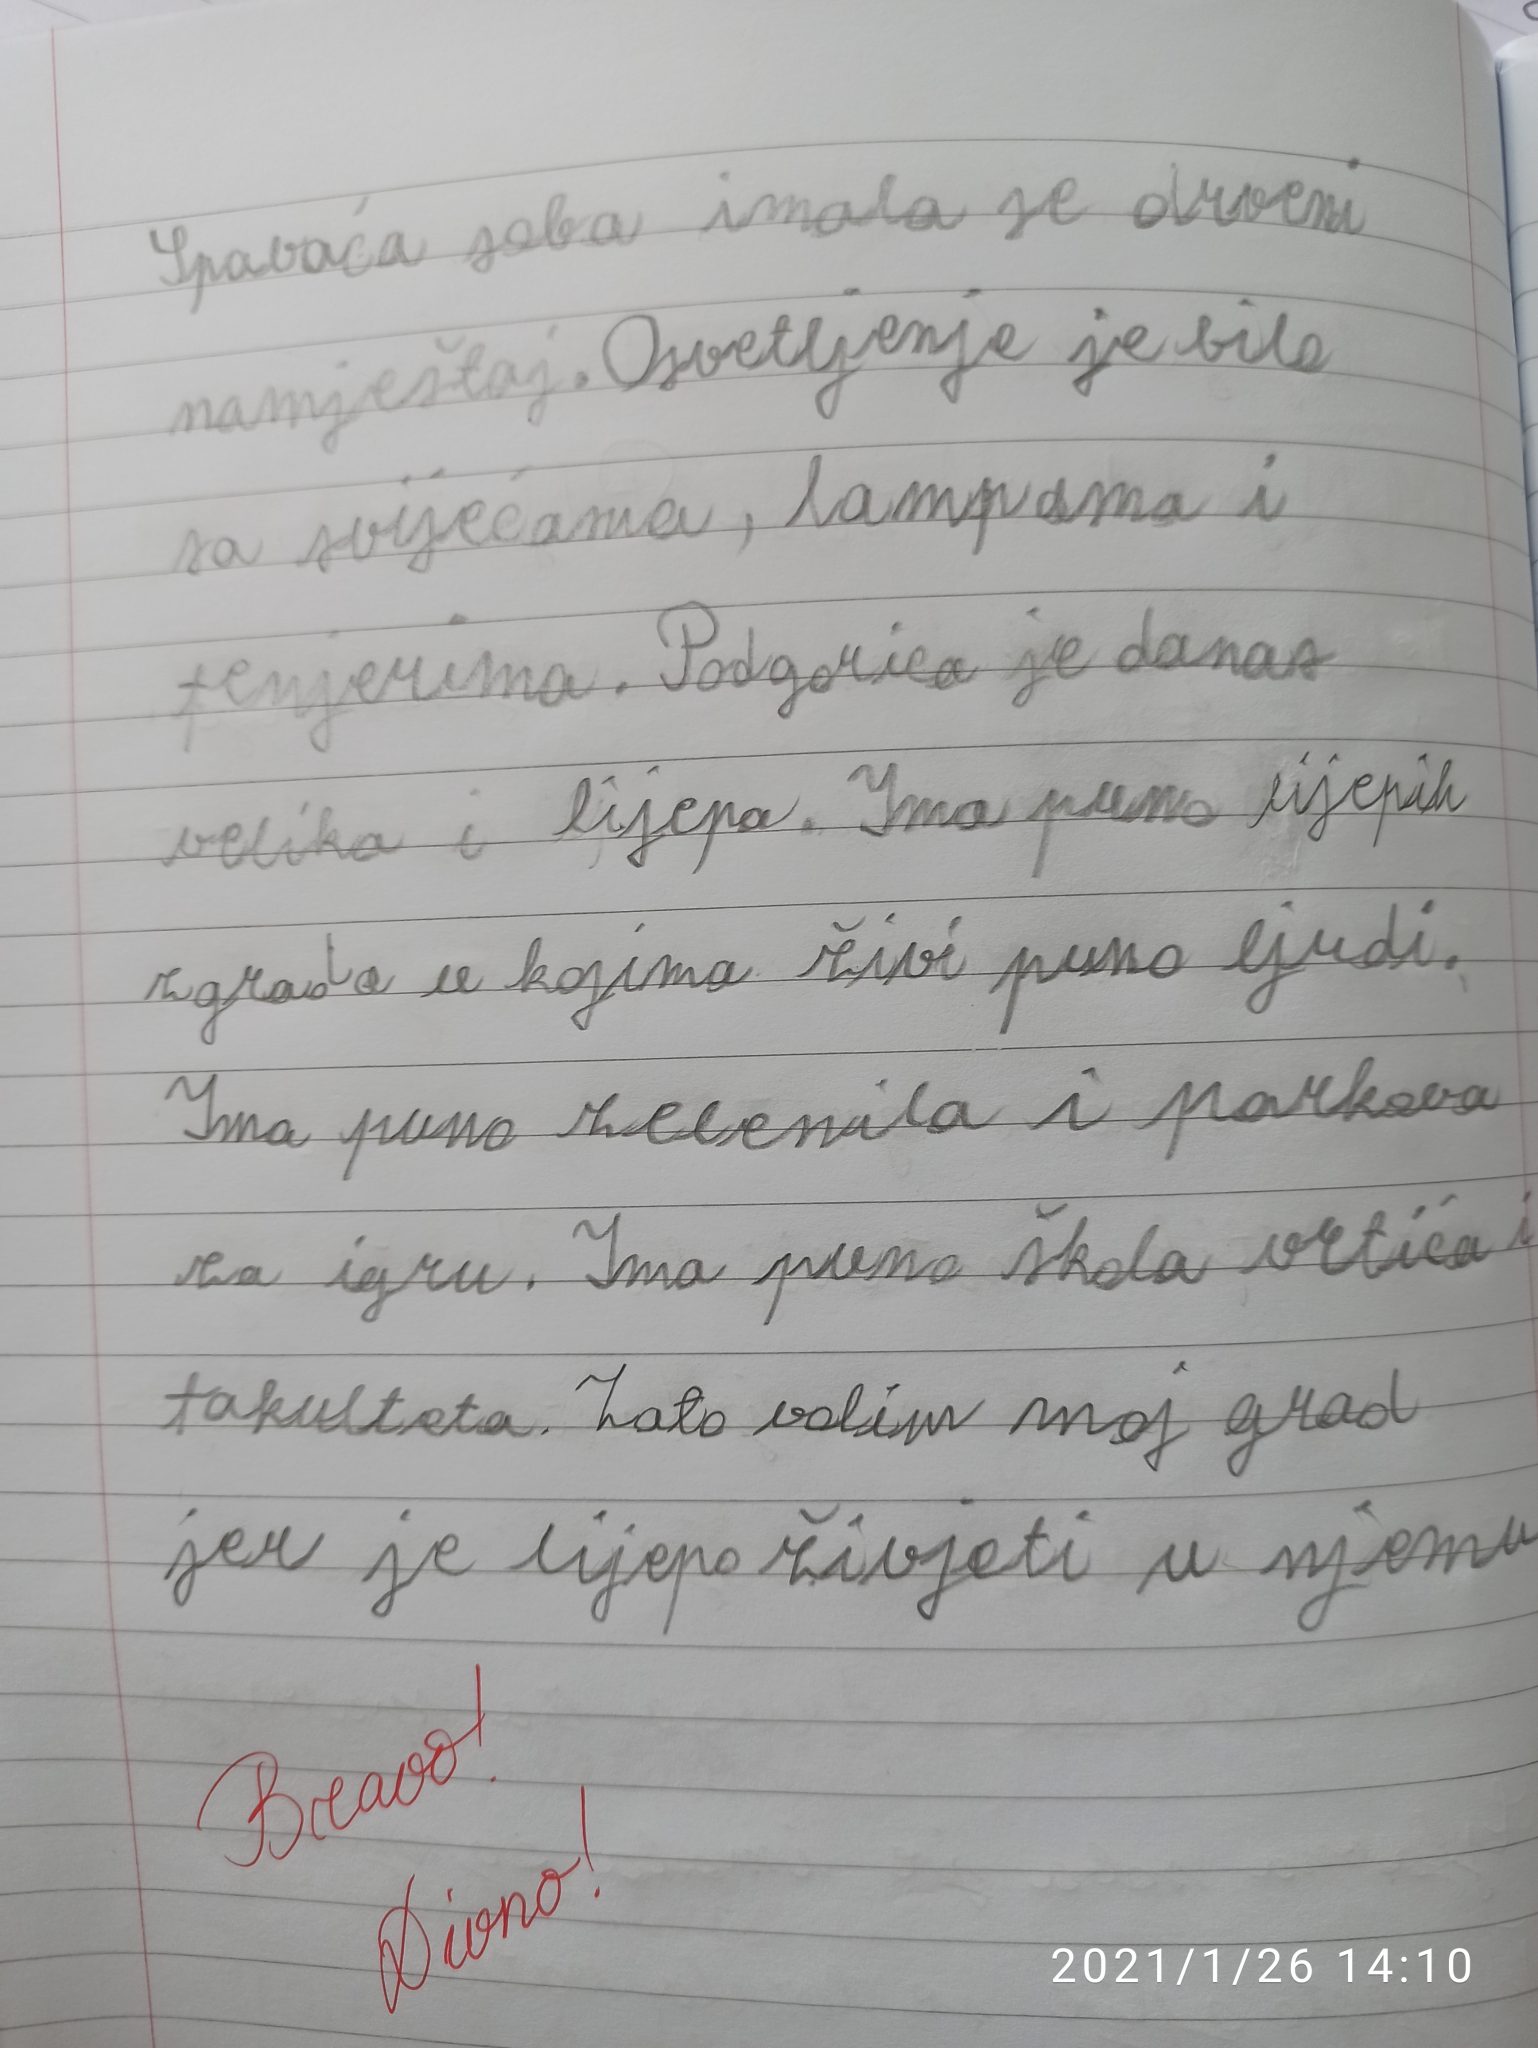 Spavaća soba imala je drveni
namještaj. Osvetljenje je bilo
sa svijećama, lampama i
fenjerima. Podgorica je danas
velika i lijepa. Ima puno lijepih
zgrada u kojima živi puno ljudi.
Ima puno zelenila i parkova
za igru. Ima puno škola vrtića i
fakulteta. Zato volim moj grad
jer je lijepo živjeti u njemu
Bravo!
Divno!
2021/1/26 14:10